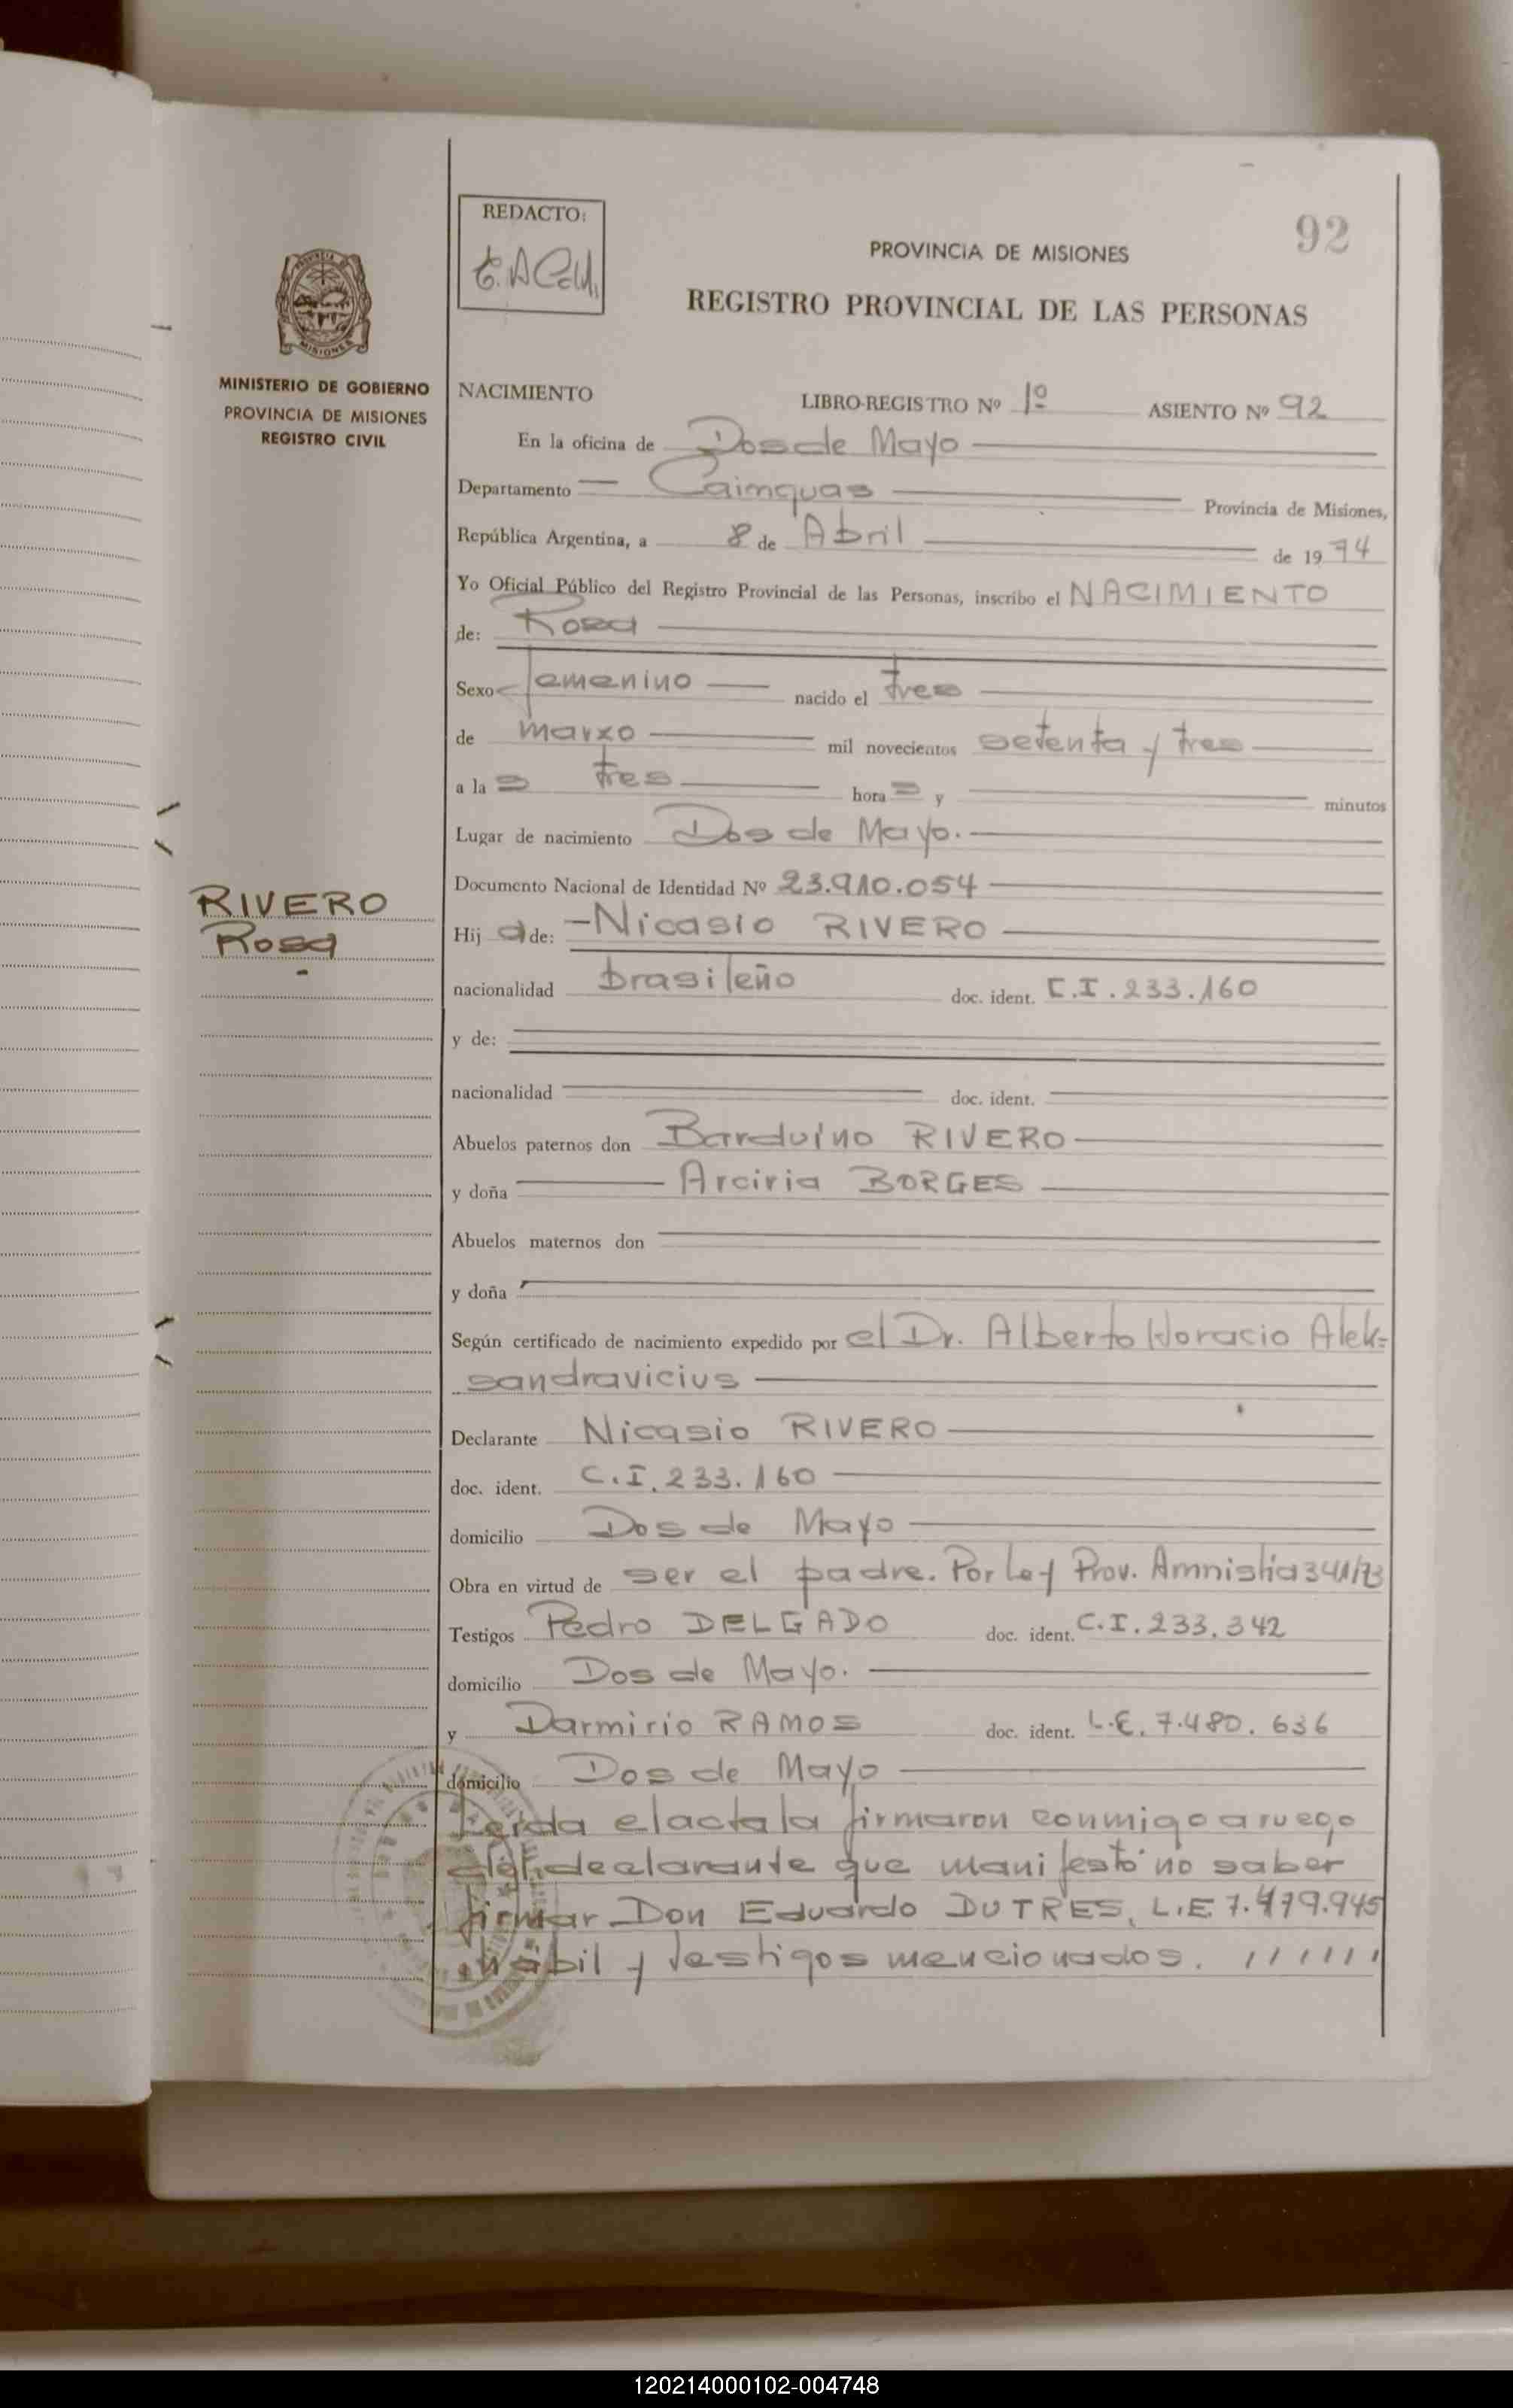 REDACTO:
92
PROVINCIA DE MISIONES
REGISTRO PROVINCIAL DE LAS PERSONAS
MISIONES
MINISTERIO DE GOBIERNO
PROVINCIA DE MISIONES
REGISTRO CIVIL
NACIMIENTO LIBRO-REGISTRO Nº 1º ASIENTO Nº 92
En la oficina de Dos de Mayo
Departamento Cainguas Provincia de Misiones,
República Argentina, a 8 de Abril de 1974
Yo Oficial Público del Registro Provincial de las Personas, inscribo el NACIMIENTO
de: Rosa
Sexo femenino nacido el tres
de marzo mil novecientos setenta y tres
a la s tres hora s y minutos
Lugar de nacimiento Dos de Mayo.
Documento Nacional de Identidad Nº 23.910.054
RIVERO
Rosa
Hij a de: -Nicasio RIVERO
nacionalidad brasileño doc. ident. C.I. 233.160
y de:
nacionalidad doc. ident.
Abuelos paternos don Barduino RIVERO
y doña Arciria BORGES
Abuelos maternos don
y doña
Según certificado de nacimiento expedido por el Dr. Alberto Horacio Alek=
sandravicius
Declarante Nicasio RIVERO
doc. ident. C.I. 233.160
domicilio Dos de Mayo
Obra en virtud de ser el padre. Por Ley Prov. Amnistia 341/73
Testigos Pedro DELGADO doc. ident. C.I. 233.342
domicilio Dos de Mayo.
y Darmirio RAMOS doc. ident. L.E. 7.480.636
domicilio Dos de Mayo
Leida el acta la firmaron conmigo a ruego
del declarante que manifestó no saber
firmar Don Eduardo DUTRES, L.E 7.479.945
hábil y testigos mencionados. //////
120214000102-004748